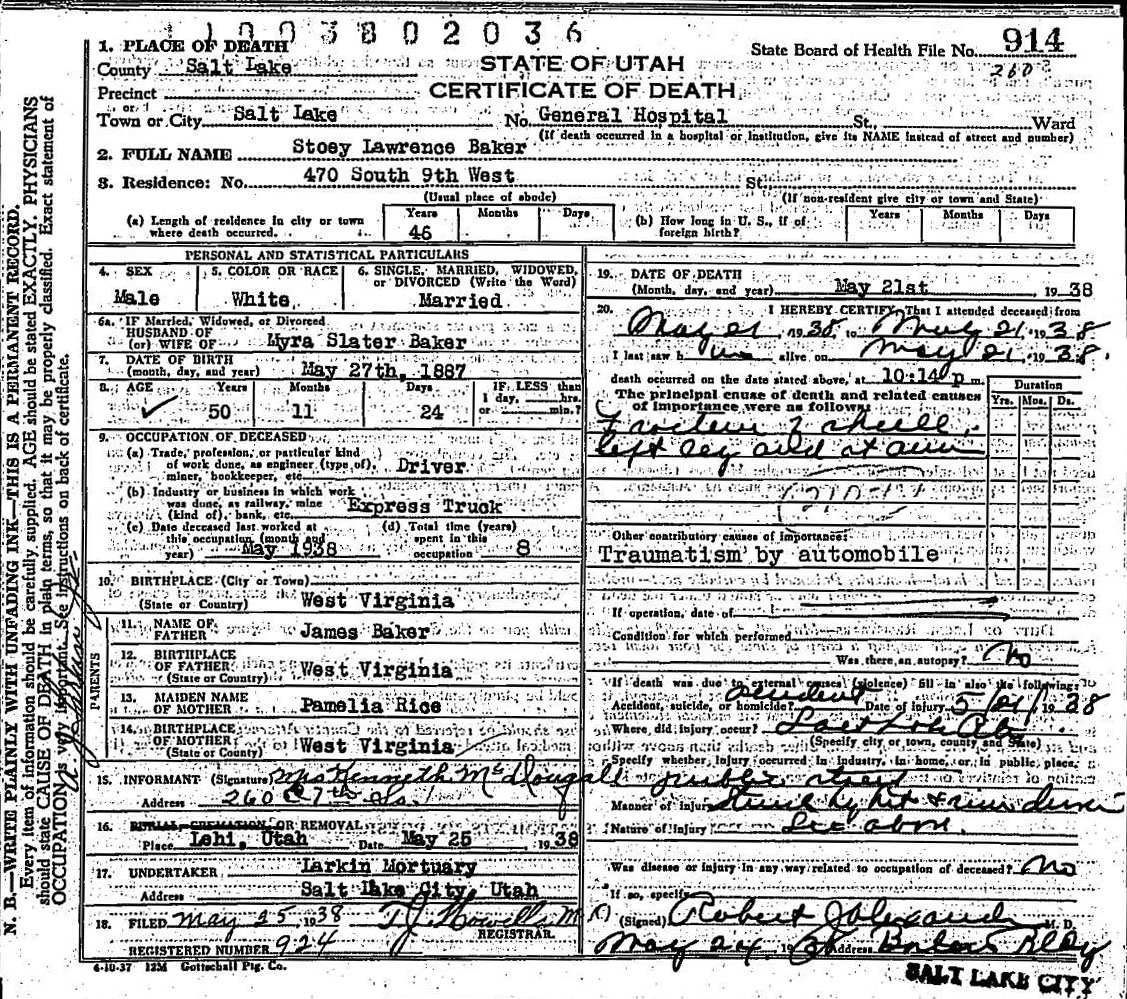 1003802036
1. PLACE OF DEATH
STATE OF UTAH
State Board of Health File No. 914
County Salt Lake
2605
CERTIFICATE OF DEATH
Precinct
or
Town or City Salt Lake No. General Hospital St., Ward
(If death occurred in a hospital or institution, give its NAME instead of street and number)
2. FULL NAME Stoey Lawrence Baker
3. Residence: No. 470 South 9th West St.
(Usual place of abode) (If non-resident give city or town and State)
(a) Length of residence in city or town where death occurred. Years 46 Months Days
(b) How long in U. S., if of foreign birth? Years Months Days
PERSONAL AND STATISTICAL PARTICULARS
4. SEX 5. COLOR OR RACE 6. SINGLE, MARRIED, WIDOWED, or DIVORCED (Write the Word)
Male White Married
6a. IF Married, Widowed, or Divorced
HUSBAND OF
(or) WIFE OF Myra Slater Baker
7. DATE OF BIRTH
(month, day, and year) May 27th, 1887
8. AGE Years Months Days IF LESS than
1 day, hrs.
50 11 24 or min.?
9. OCCUPATION OF DECEASED
(a) Trade, profession, or particular kind
of work done, as engineer (type of), Driver
miner, bookkeeper, etc.
(b) Industry or business in which work
was done, as railway, mine Express Truck
(kind of), bank, etc.
(c) Date deceased last worked at (d) Total time (years)
this occupation (month and spent in this
year) May 1938 occupation 8
10. BIRTHPLACE (City or Town)
(State or Country) West Virginia
PARENTS
11. NAME OF
FATHER James Baker
12. BIRTHPLACE
OF FATHER
(State or Country) West Virginia
13. MAIDEN NAME
OF MOTHER Pamelia Rice
14. BIRTHPLACE
OF MOTHER
(State or County) West Virginia
15. INFORMANT (Signature) Mrs Kenneth McDougall
Address 260 E 7th So.
16. BURIAL, CREMATION, OR REMOVAL
Place Lehi, Utah Date May 25 1938
17. UNDERTAKER Larkin Mortuary
Address Salt Lake City, Utah
18. FILED May 25, 1938 T.J. Howells M D
REGISTRAR.
REGISTERED NUMBER 924
4-10-37 12M Gottschall Ptg. Co.
19. DATE OF DEATH
(Month, day, and year) May 21st 1938
20. I HEREBY CERTIFY, That I attended deceased from
May 21 1938 to May 21 1938
I last saw him alive on May 21 1938.
death occurred on the date stated above, at 10:14 p m.
Duration
The principal cause of death and related causes Yrs. Mos. Ds.
of importance were as follows:
skull,
left leg and rt arm
Other contributory causes of importance:
Traumatism by automobile
If operation, date of
Condition for which performed
Was there an autopsy? No
If death was due to external causes (violence) fill in also the following:
Accident, suicide, or homicide? accident Date of injury 5/21/ 1938
Where did injury occur?
(Specify city or town, county and State)
Specify whether injury occurred in industry, in home, or in public place.
public street
Manner of injury Struck by hit & run driver
Nature of injury See above.
Was disease or injury in any way related to occupation of deceased? No
If so, specify
(Signed) Robert J Alexander M. D.
May 24, 1938 Address Bldg
SALT LAKE CITY
N. B.—WRITE PLAINLY WITH UNFADING INK—THIS IS A PERMANENT RECORD.
Every item of information should be carefully supplied. AGE should be stated EXACTLY. PHYSICIANS
should state CAUSE OF DEATH in plain terms, so that it may be properly classified. Exact statement of
OCCUPATION is very important. See instructions on back of certificate.